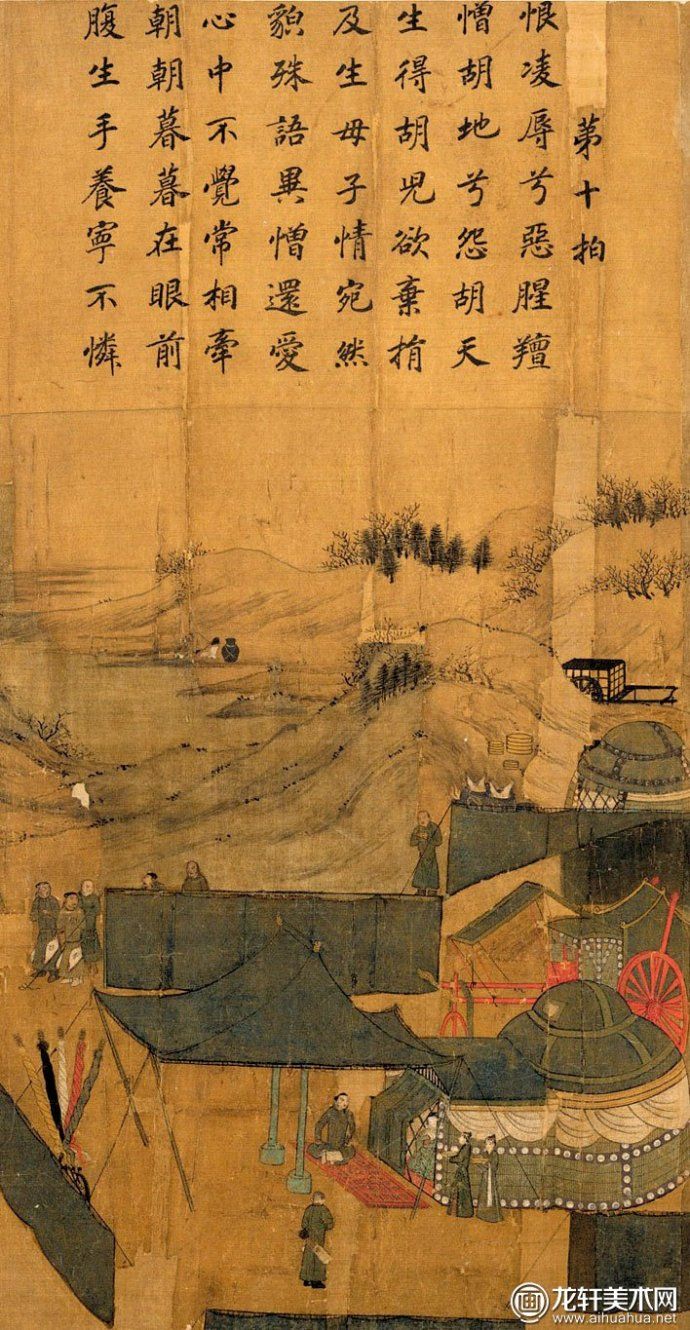 第十拍
恨凌辱兮惡腥羶
憎胡地兮怨胡天
生得胡兒欲棄捐
及生母子情宛然
貌殊語異憎還愛
心中不覺常相牽
朝朝暮暮在眼前
腹生手養寧不憐
龙轩美术网
www.aihuahua.net